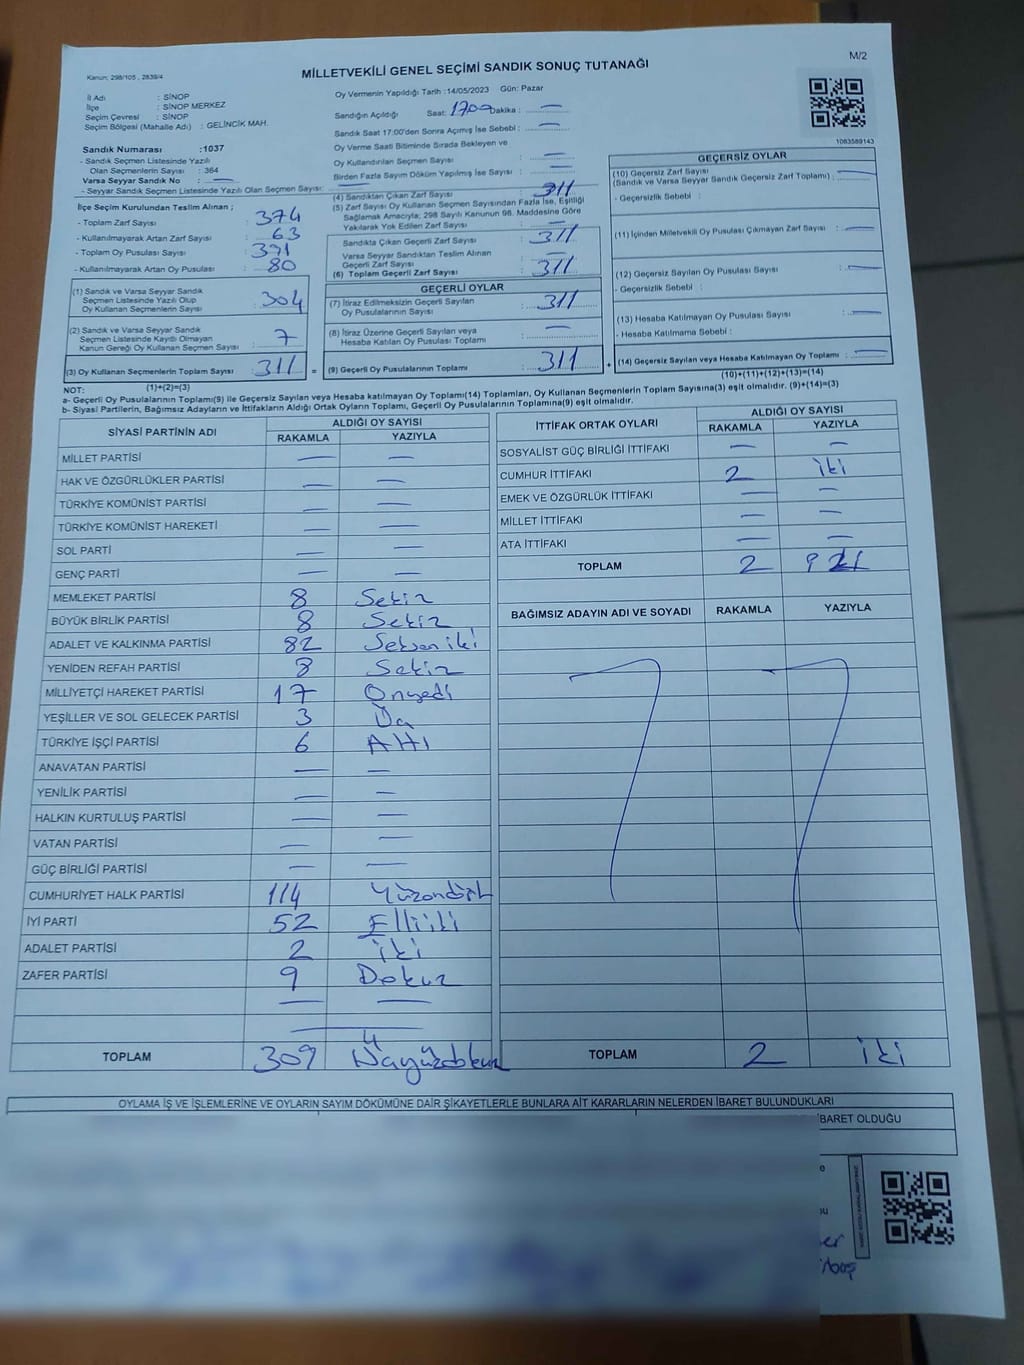 M/2
Kanun: 298/105 , 2839/4
MİLLETVEKİLİ GENEL SEÇİMİ SANDIK SONUÇ TUTANAĞI
İl Adı : SİNOP
İlçe : SİNOP MERKEZ
Seçim Çevresi : SİNOP
Seçim Bölgesi (Mahalle Adı) : GELİNCİK MAH.
Sandık Numarası :1037
- Sandık Seçmen Listesinde Yazılı
Olan Seçmenlerin Sayısı : 364
Varsa Seyyar Sandık No : —
- Seyyar Sandık Seçmen Listesinde Yazılı Olan Seçmen Sayısı: —
Oy Vermenin Yapıldığı Tarih :14/05/2023 Gün: Pazar
Sandığın Açıldığı Saat: 1700 Dakika : —
Sandık Saat 17:00'den Sonra Açmış İse Sebebi : —
Oy Verme Saati Bitiminde Sırada Bekleyen ve
Oy Kullandırılan Seçmen Sayısı : —
Birden Fazla Sayım Döküm Yapılmış İse Sayısı : —
1083589143
İlçe Seçim Kurulundan Teslim Alınan ;
- Toplam Zarf Sayısı : 374
- Kullanılmayarak Artan Zarf Sayısı : 63
- Toplam Oy Pusulası Sayısı : 391
- Kullanılmayarak Artan Oy Pusulası : 80
(1) Sandık ve Varsa Seyyar Sandık
Seçmen Listesinde Yazılı Olup
Oy Kullanan Seçmenlerin Sayısı : 304
(2) Sandık ve Varsa Seyyar Sandık
Seçmen Listesinde Kayıtlı Olmayan
Kanun Gereği Oy Kullanan Seçmen Sayısı : 7
(3) Oy Kullanan Seçmenlerin Toplam Sayısı : 311
(1)+(2)=(3)
(4) Sandıktan Çıkan Zarf Sayısı : 311
(5) Zarf Sayısı Oy Kullanan Seçmen Sayısından Fazla İse, Eşitliği
Sağlamak Amacıyla; 298 Sayılı Kanunun 98. Maddesine Göre
Yakılarak Yok Edilen Zarf Sayısı : —
Sandıkta Çıkan Geçerli Zarf Sayısı : 311
Varsa Seyyar Sandıktan Teslim Alınan
Geçerli Zarf Sayısı : —
(6) Toplam Geçerli Zarf Sayısı : 311
GEÇERLİ OYLAR
(7) İtiraz Edilmeksizin Geçerli Sayılan
Oy Pusulalarının Sayısı : 311
(8) İtiraz Üzerine Geçerli Sayılan veya
Hesaba Katılan Oy Pusulası Toplamı : —
= (9) Geçerli Oy Pusulalarının Toplamı : 311 +
GEÇERSİZ OYLAR
(10) Geçersiz Zarf Sayısı
(Sandık ve Varsa Seyyar Sandık Geçersiz Zarf Toplamı) : —
- Geçersizlik Sebebi :
(11) İçinden Milletvekili Oy Pusulası Çıkmayan Zarf Sayısı : —
(12) Geçersiz Sayılan Oy Pusulası Sayısı : —
- Geçersizlik Sebebi :
(13) Hesaba Katılmayan Oy Pusulası Sayısı : —
- Hesaba Katılmama Sebebi :
(14) Geçersiz Sayılan veya Hesaba Katılmayan Oy Toplamı : —
(10)+(11)+(12)+(13)=(14)
NOT:
a- Geçerli Oy Pusulalarının Toplamı(9) ile Geçersiz Sayılan veya Hesaba katılmayan Oy Toplamı(14) Toplamları, Oy Kullanan Seçmenlerin Toplam Sayısına(3) eşit olmalıdır. (9)+(14)=(3)
b- Siyasi Partilerin, Bağımsız Adayların ve İttifakların Aldığı Ortak Oyların Toplamı, Geçerli Oy Pusulalarının Toplamına(9) eşit olmalıdır.
SİYASİ PARTİNİN ADI ALDIĞI OY SAYISI
RAKAMLA YAZIYLA
MİLLET PARTİSİ — —
HAK VE ÖZGÜRLÜKLER PARTİSİ — —
TÜRKİYE KOMÜNİST PARTİSİ — —
TÜRKİYE KOMÜNİST HAREKETİ — —
SOL PARTİ — —
GENÇ PARTİ — —
MEMLEKET PARTİSİ 8 Sekiz
BÜYÜK BİRLİK PARTİSİ 8 Sekiz
ADALET VE KALKINMA PARTİSİ 82 Seksen iki
YENİDEN REFAH PARTİSİ 8 Sekiz
MİLLİYETÇİ HAREKET PARTİSİ 17 Onyedi
YEŞİLLER VE SOL GELECEK PARTİSİ 3 Üç
TÜRKİYE İŞÇİ PARTİSİ 6 Altı
ANAVATAN PARTİSİ — —
YENİLİK PARTİSİ — —
HALKIN KURTULUŞ PARTİSİ — —
VATAN PARTİSİ — —
GÜÇ BİRLİĞİ PARTİSİ — —
CUMHURİYET HALK PARTİSİ 114 Yüzondört
İYİ PARTİ 52 Elliiki
ADALET PARTİSİ 2 iki
ZAFER PARTİSİ 9 Dokuz
— —
TOPLAM 309
İTTİFAK ORTAK OYLARI ALDIĞI OY SAYISI
RAKAMLA YAZIYLA
SOSYALİST GÜÇ BİRLİĞİ İTTİFAKI — —
CUMHUR İTTİFAKI 2 iki
EMEK VE ÖZGÜRLÜK İTTİFAKI — —
MİLLET İTTİFAKI — —
ATA İTTİFAKI — —
TOPLAM 2
BAĞIMSIZ ADAYIN ADI VE SOYADI RAKAMLA YAZIYLA
TOPLAM 2 iki
OYLAMA İŞ VE İŞLEMLERİNE VE OYLARIN SAYIM DÖKÜMÜNE DAİR ŞİKAYETLERLE BUNLARA AİT KARARLARIN NELERDEN İBARET BULUNDUKLARI
İBARET OLDUĞU